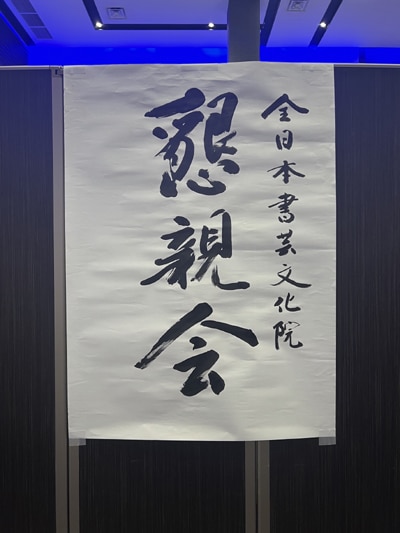 全日本書芸文化院
懇親会